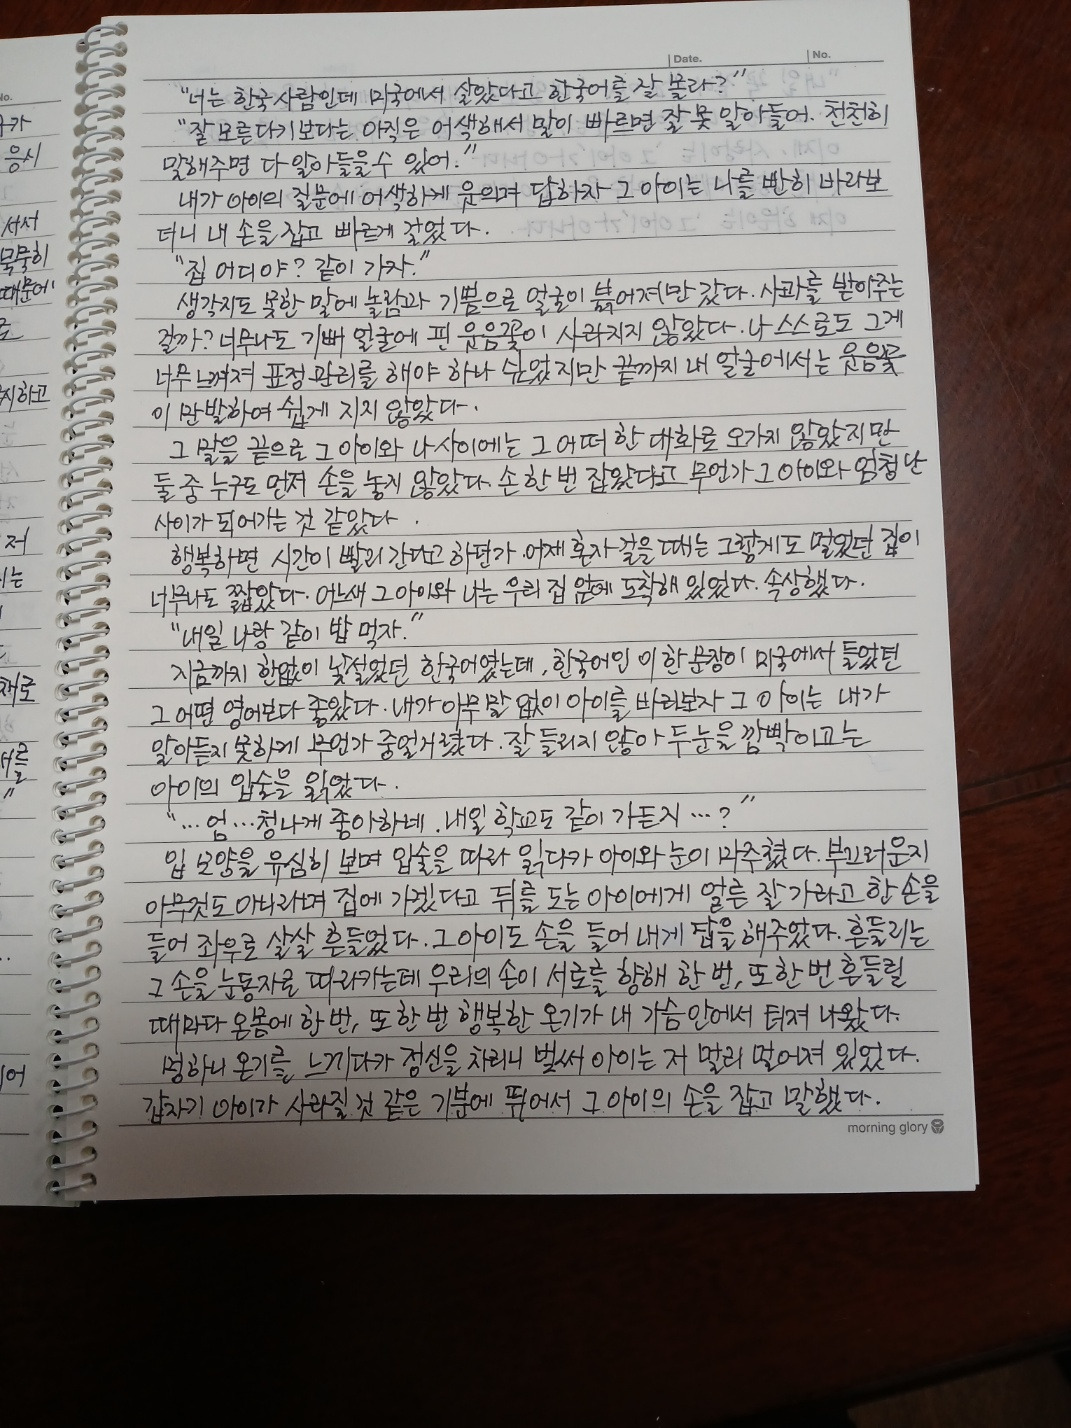 Date.
No.
"너는 한국 사람인데 미국에서 살았다고 한국어를 잘 몰라?"
"잘 모른다기보다는 아직은 어색해서 말이 빠르면 잘 못 알아들어. 천천히
말해주면 다 알아들을 수 있어."
내가 아이의 질문에 어색하게 웃으며 답하자 그 아이는 나를 빤히 바라보
더니 내 손을 잡고 빠르게 걸었다.
"집 어디야? 같이 가자."
생각지도 못한 말에 놀람과 기쁨으로 얼굴이 붉어져만 갔다. 사과를 받아주는
걸까? 너무나도 기뻐 얼굴에 핀 웃음꽃이 사라지지 않았다. 나 스스로도 그게
너무 느껴져 표정 관리를 해야 하나 싶었지만 끝까지 내 얼굴에서는 웃음꽃
이 만발하여 쉽게 지지 않았다.
그 말을 끝으로 그 아이와 나 사이에는 그 어떠한 대화로 오가지 않았지만
둘 중 누구도 먼저 손을 놓지 않았다. 손 한 번 잡았다고 무언가 그 아이와 엄청난
사이가 되어가는 것 같았다.
행복하면 시간이 빨리 간다고 하던가 어제 혼자 걸을 때는 그렇게도 멀었던 집이
너무나도 짧았다. 어느새 그 아이와 나는 우리 집 앞에 도착해 있었다. 속상했다.
"내일 나랑 같이 밥 먹자."
지금까지 한없이 낯설었던 한국어였는데, 한국어인 이 한 문장이 미국에서 들었던
그 어떤 영어보다 좋았다. 내가 아무 말 없이 아이를 바라보자 그 아이는 내가
알아듣지 못하게 무언가 중얼거렸다. 잘 들리지 않아 두 눈을 깜빡이고는
아이의 입술을 읽었다.
"…엄…청나게 좋아하네. 내일 학교도 같이 가든지…?"
입 모양을 유심히 보며 입술을 따라 읽다가 아이와 눈이 마주쳤다. 부끄러운지
아무것도 아니라며 집에 가겠다고 뒤를 도는 아이에게 얼른 잘 가라고 한 손을
들어 좌우로 살살 흔들었다. 그 아이도 손을 들어 내게 답을 해주었다. 흔들리는
그 손을 눈동자로 따라가는데 우리의 손이 서로를 향해 한 번, 또 한 번 흔들릴
때마다 온몸에 한 번, 또 한 번 행복한 온기가 내 가슴 안에서 터져 나왔다.
멍하니 온기를 느끼다가 정신을 차리니 벌써 아이는 저 멀리 멀어져 있었다.
갑자기 아이가 사라질 것 같은 기분에 뛰어서 그 아이의 손을 잡고 말했다.
morning glory